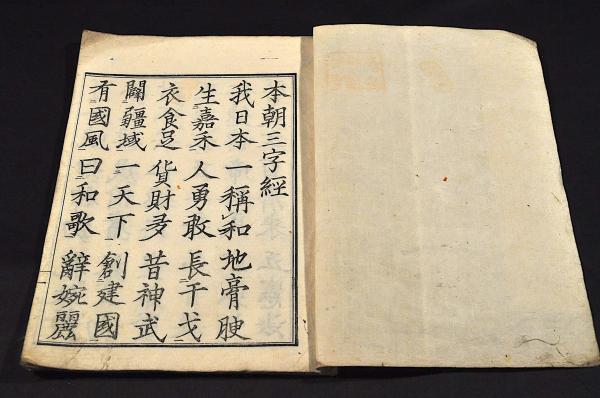 本朝三字經
我日本一稱和地膏腴
生嘉禾人勇敢長干戈
衣食足貨財多昔神武
闢疆域一天下創建國
有國風曰和歌辭婉麗